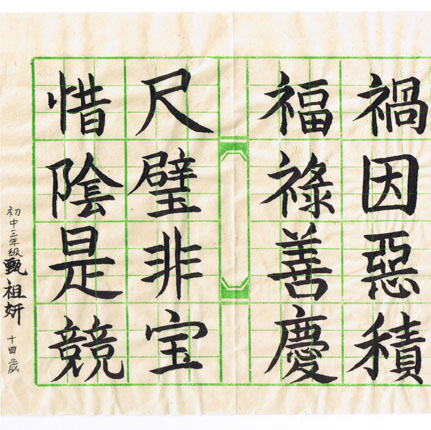 禍因惡積
福祿善慶
尺璧非宝
惜陰是競
初中三年級 甄祖妍 十四歲